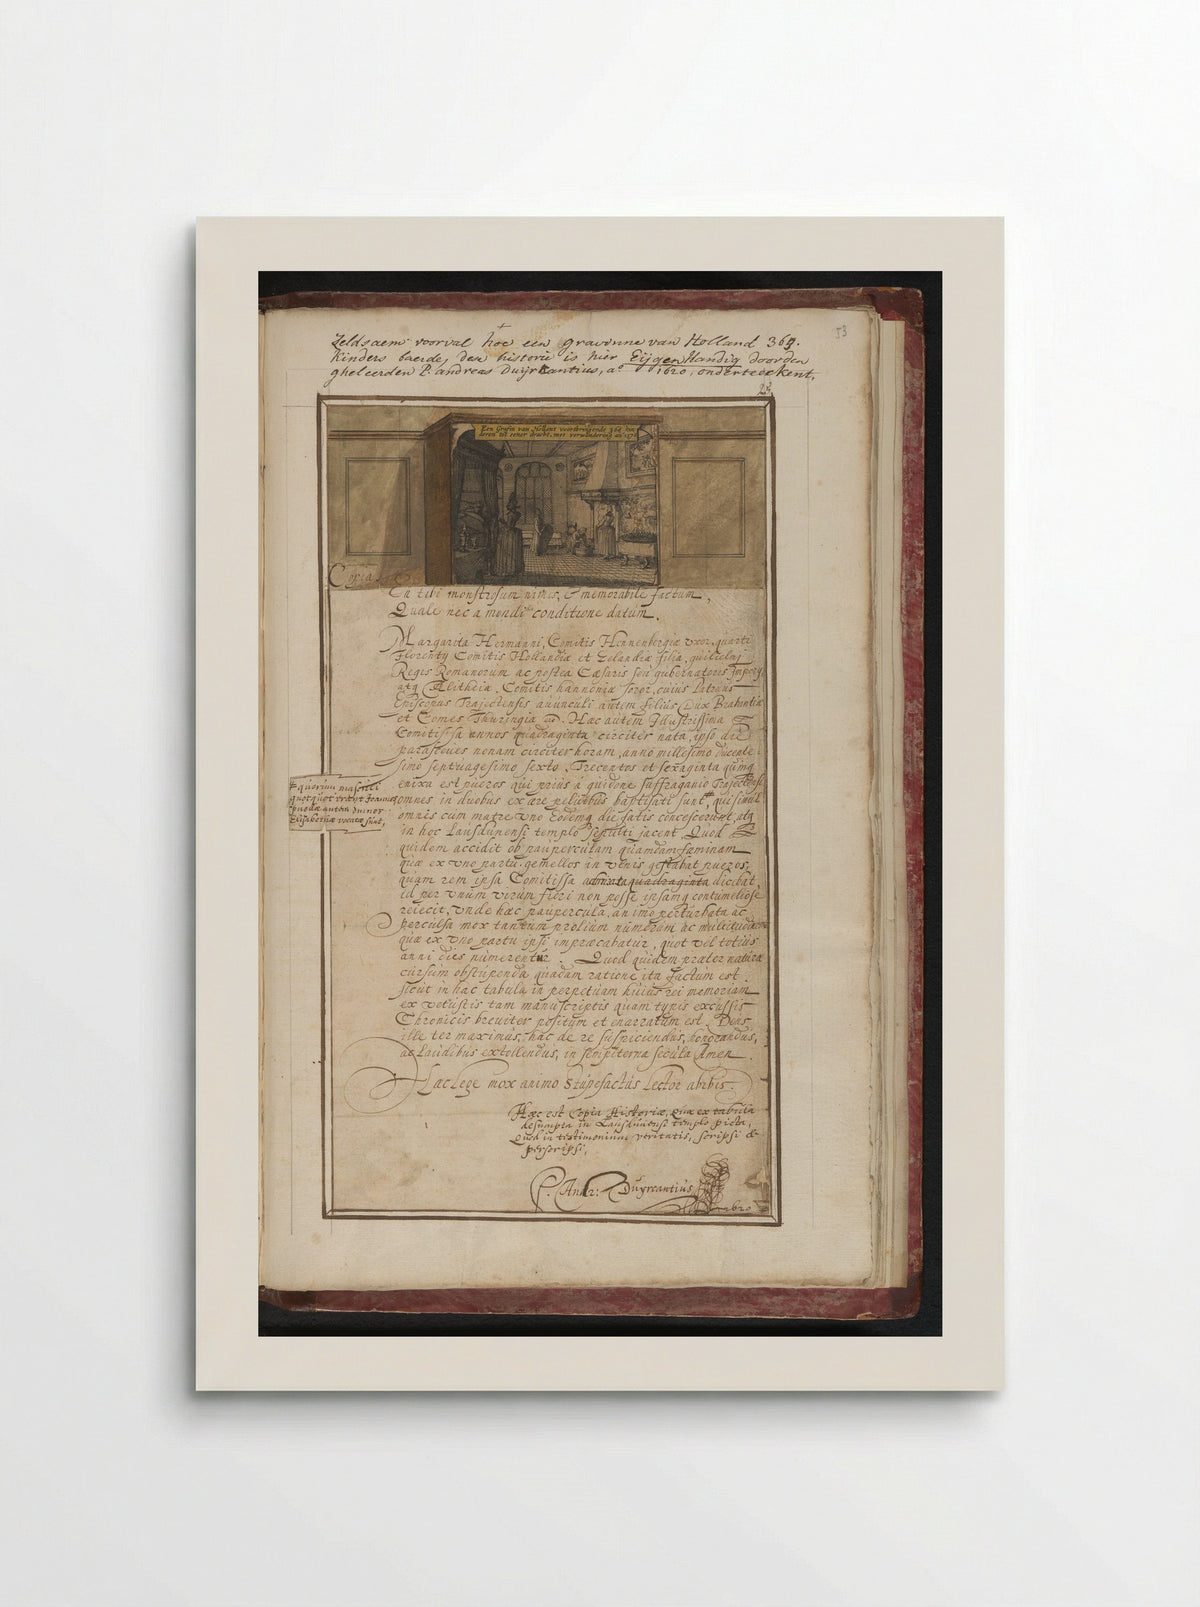 53
Zeldsaem voorval hoe een gravinne van Holland 365.
Kinders baerde, den historie is hier Eijgen Handig doorden
gheleerden P. andreas Duijrcantius, ao 1620, onderteekent.
Een Grafin van Hollant voortbringende 364 kin
deren tot eener dracht, met verwondering an
Copia.
En tibi monstrosum nimis, & memorabile factum,
Quale nec a mundi conditione datum.
Margarita Hermanni, Comitis Hennenbergiæ vxor, quarti
Florenty Comitis Hollandiæ et Zelandiæ filia, guilielmi
Regis Romanorum ac postea Cæsaris seu gubernatoris Impery,
atq Alitheiæ, Comitis hannoniæ soror, cuius Patruus
Episcopus Trajectensis avunculi autem filius Dux Brabantiæ
et Comes Thuringiæ Hæc autem Illustrissima
Comitissa annos quadraginta circiter nata, ipso die
parasceves nonam circiter horam, anno millesimo ducente
simo septuagesimo sexto, Trecentos et sexaginta quinq
enixa est pueros qui prius á guidone suffraganio Trajectensi
omnes in duobus ex ære pelvibus baptisati sunt, que simul
quorum masculi
quotquot erant Joannes
puellæ autem
Elisabethæ vocatæ sunt,
omnis cum matre vno eodemq die fatis concesserunt, atq
in hoc Lausdunensi templo sepulti jacent. Quod
quidem accidit ob pauperculam quamdam fæminam
quæ ex vno partu gemellos in vlnis gestabat pueros,
quam rem ipsa Comitissa dicebat,
id per vnum virum fieri non posse ipsamq contumeliose
reiecit, vnde hæc paupercula, animo perturbata ac
perculsa mox tantum prolium numerum ac multitudinem
quæ ex vno partu ipsi impræcabatur, quot vel totius
anni dies numerentur. Quod quidem præter naturæ
cursum obstupenda quadam ratione ita factum est
sicut in hac tabula in perpetuam huius rei memoriam
ex vetustis tam manuscriptis quam typis excussis
Chronicis breviter positum et enarratum est. Deus
ille ter maximus, hac de re suspiciendus, honorandus,
ac laudibus extollendus, in sempiterna secula Amen.
Hac lege mox animo stupefactus lector abibis.
Hæc est Copia Historiæ, quæ ex tabula
desumpta in Lausdunensi templo picta,
Quod in testimonium veritatis, scripsi &
perscripsi,
P. Andr: Duyrcantius
1620